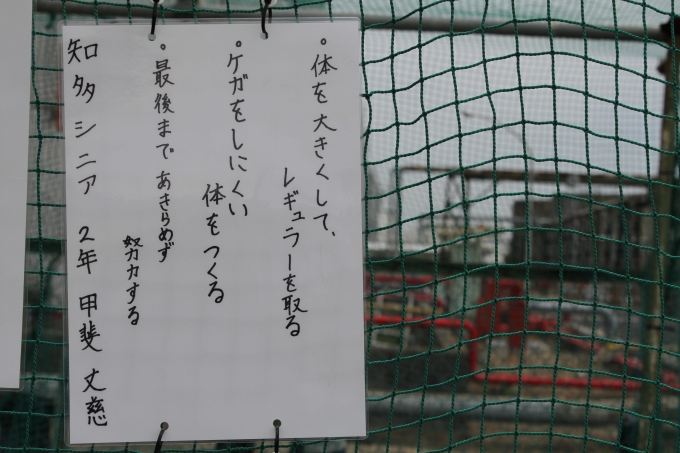 。体を大きくして、
レギュラーを取る
。ケガをしにくい
体をつくる
。最後まであきらめず
努力する
知多シニア 2年 甲斐 丈慈